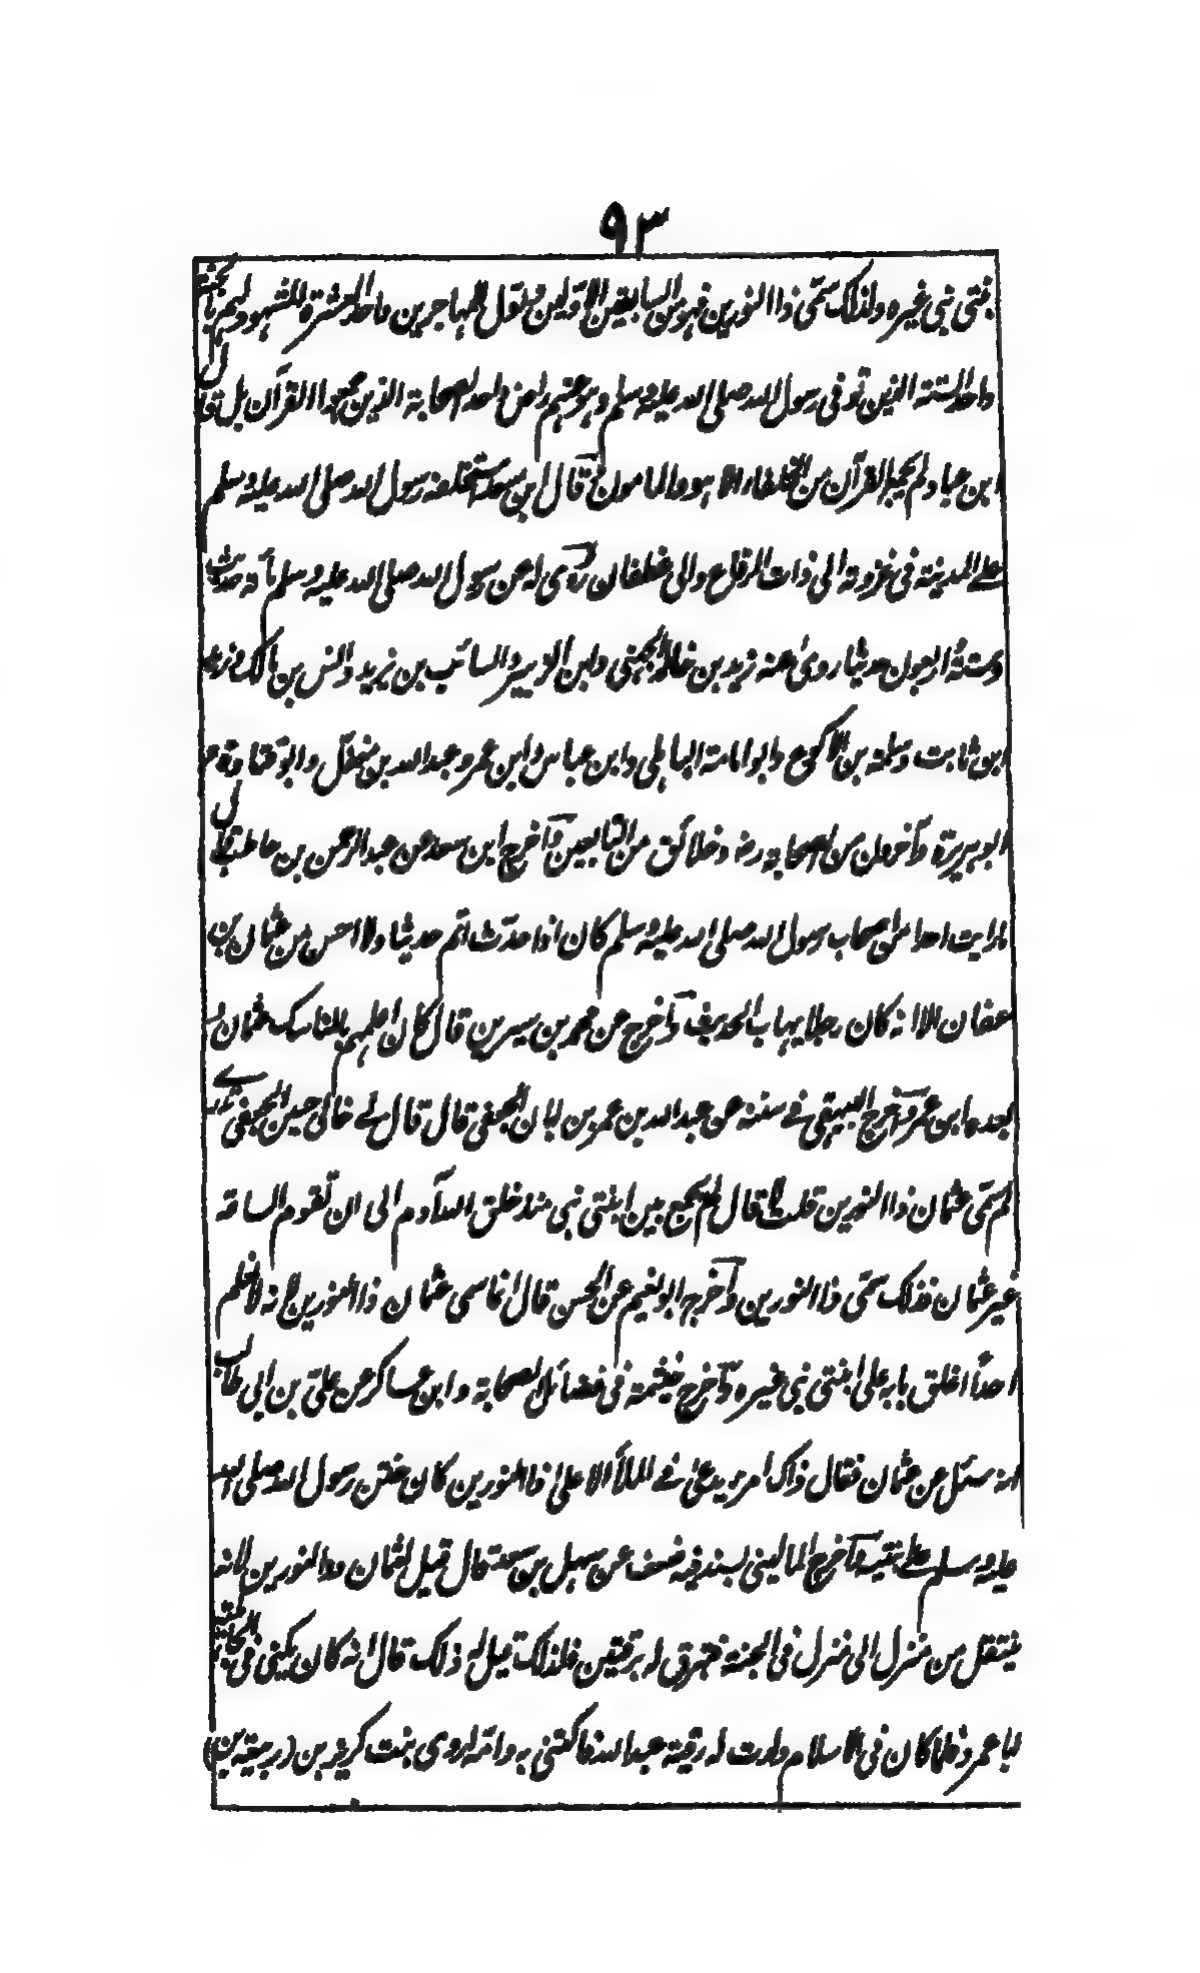 ٩٣
بنتى نبى غيره ولذلك سمى ذا النورين فهو من السابقين الاولين واول المهاجرين واحد العشرة المشهود لهم بالجنة
واحد الستة الذين توفى رسول الله صلى الله عليه وسلم وهو عنهم راض واحد الصحابة الذين جمعوا القرآن بل قال
ابن عباد لم يجمع القرآن من الخلفاء الا هو والمامون قال ابن سعد استخلفه رسول الله صلى الله عليه وسلم
على المدينة فى غزوته الى ذات الرقاع والى غطفان روى له عن رسول الله صلى الله عليه وسلم مأة حديث
وستة واربعون حديثا روى عنه زيد بن خالد الجهنى وابن الزبير والسائب بن يزيد وانس بن مالك وزيد
ابن ثابت وسلمة بن الاكوع وابو امامة الباهلى وابن عباس وابن عمر وعبد الله بن مغفل وابو قتادة و
ابو هريرة وآخرون من الصحابة رض وخلائق من التابعين وآخرج ابن سعد عن عبد الرحمن بن حاطب قال
ما رايت احدا من اصحاب رسول الله صلى الله عليه وسلم كان اذا حدث اتم حديثا ولا احسن من عثمان بن
عفان الا انه كان رجلا يهاب الحديث وآخرج عن محمد بن سيرين قال كان اعلمهم بالمناسك عثمان و
بعده ابن عمر وآخرج البيهقى فے سننه عن عبد الله بن عمر بن ابان الجعفى قال قال لے خالى حسين الجعفى تدرے
لم سمى عثمان ذا النورين قلت لا قال لم يجمع بين ابنتى نبى منذ خلق الله آدم الى ان تقوم الساعة
غير عثمان فذلك سمى ذا النورين وآخرج ابو نعيم عن الحسن قال انما سمى عثمان ذا النورين لانه لا نعلم
احدًا اغلق بابه على ابنتى نبى غيره وآخرج خيثمة فى فضائل الصحابة وابن عساكر عن على بن ابى طالب
انه سئل عن عثمان فقال ذاك امرء يدعى فے الملأ الاعلى ذا النورين كان ختن رسول الله صلى الله
عليه وسلم على ابنتيه وآخرج المالينى بسند فيه ضعف عن سهل بن سعد قال قيل لعثمان ذو النورين لانه
ينتقل من منزل الى منزل فى الجنة فتبرق له برقتين فلذلك قيل له ذلك قال انه كان يكنى فى الجاهلية
ابا عمرو فلما كان فى الاسلام ولدت له رقية عبد الله فاكتنى به وامه اروى بنت كريز بن (ربيعة بن)